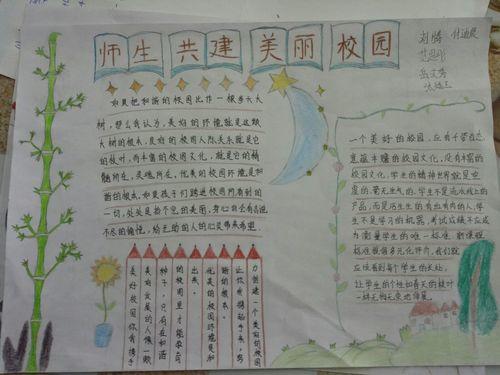 师生共建美丽校园
如果把和谐的校园比作一棵参天大
树,那么我认为,美好的环境就是这颗
大树的根本,良好的校园人际关系就是它
的枝叶,而丰富的校园文化,就是它的精
髓所在,灵魂所在,优美的校园环境是和
谐的根本,如果孩子们踏进校园所看到的
一切,处处是抬个宽的美丽,身心就会有说
不尽的愉悦,给主动的人的心灵带来希望
一个美好的校园,应有千姿百态
意蕴丰臻的校园文化,没有丰富的
校园文化,学生的精神世界就是空
虚的,毫无生气的,学生不是流水线上的
产品,而是活生生的有血有肉的人,学
生不是学习的机器,考试成绩不应成
为衡量学生的唯一标准,新课程
标准提倡多元化评价,我们就
应该看到每个学生的长处,
让学生的个性如春天的枝叶
一样无拘无束地伸展。
美好校园你我携手
美好发展的人像一颗
种子,只有在和谐
的校园里才能孕育
出来。
优美的校园环境是和
谐的根本。
让你我携起手来,努
力创建一个美丽的校园